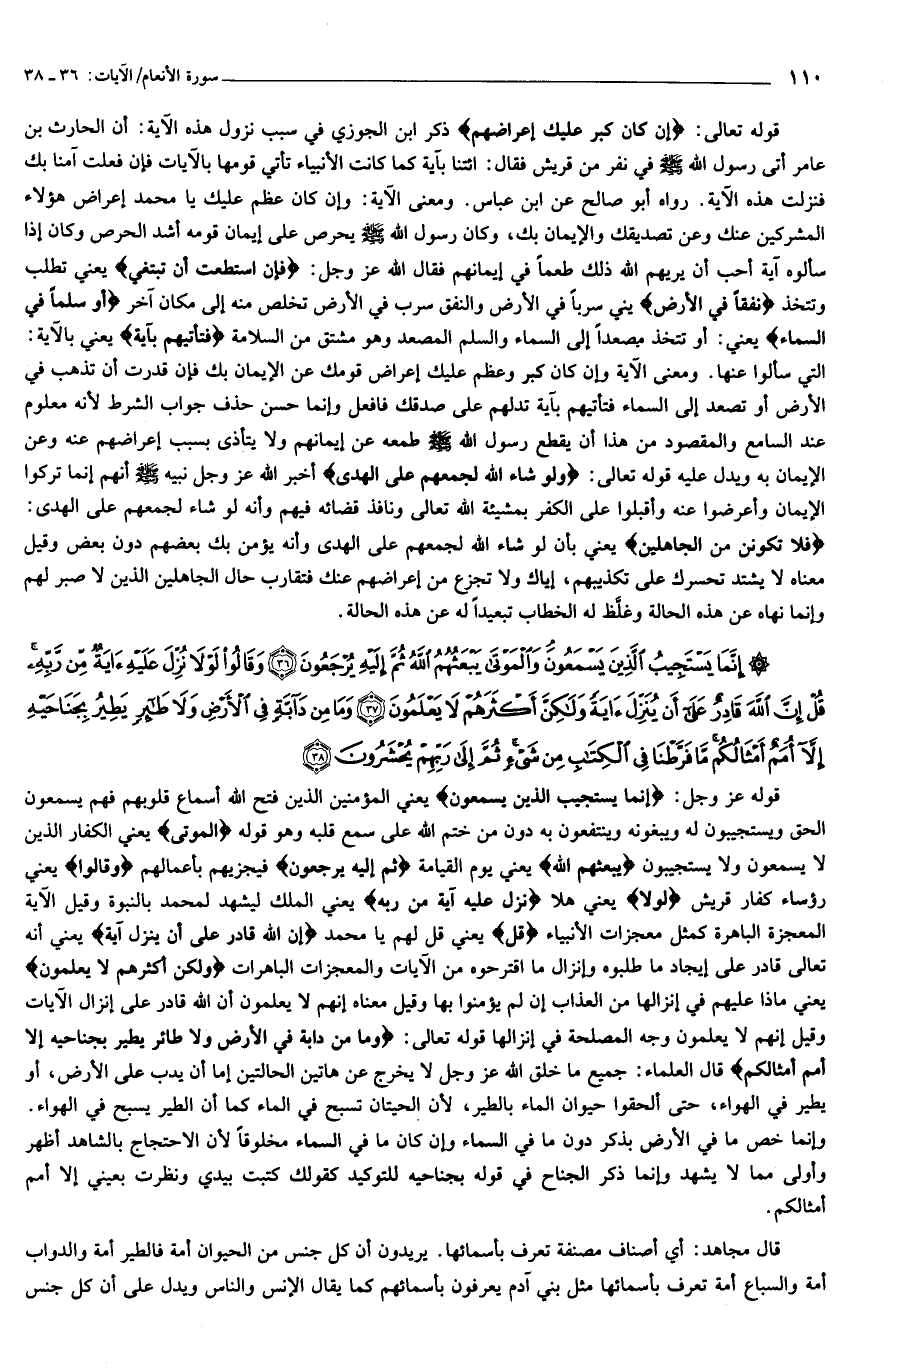 ١١٠ سورة الأنعام/ الآيات: ٣٦ ـ ٣٨
قوله تعالى: ﴿إن كان كبر عليك إعراضهم﴾ ذكر ابن الجوزي في سبب نزول هذه الآية: أن الحارث بن
عامر أتى رسول الله ﷺ في نفر من قريش فقال: ائتنا بآية كما كانت الأنبياء تأتي قومها بالآيات فإن فعلت آمنا بك
فنزلت هذه الآية. رواه أبو صالح عن ابن عباس. ومعنى الآية: وإن كان عظم عليك يا محمد إعراض هؤلاء
المشركين عنك وعن تصديقك والإيمان بك، وكان رسول الله ﷺ يحرص على إيمان قومه أشد الحرص وكان إذا
سألوه آية أحب أن يريهم الله ذلك طعماً في إيمانهم فقال الله عز وجل: ﴿فإن استطعت أن تبتغي﴾ يعني تطلب
وتتخذ ﴿نفقاً في الأرض﴾ يني سرباً في الأرض والنفق سرب في الأرض تخلص منه إلى مكان آخر ﴿أو سلماً في
السماء﴾ يعني: أو تتخذ مصعداً إلى السماء والسلم المصعد وهو مشتق من السلامة ﴿فتأتيهم بآية﴾ يعني بالآية:
التي سألوا عنها. ومعنى الآية وإن كان كبر وعظم عليك إعراض قومك عن الإيمان بك فإن قدرت أن تذهب في
الأرض أو تصعد إلى السماء فتأتيهم بآية تدلهم على صدقك فافعل وإنما حسن حذف جواب الشرط لأنه معلوم
عند السامع والمقصود من هذا أن يقطع رسول الله ﷺ طمعه عن إيمانهم ولا يتأذى بسبب إعراضهم عنه وعن
الإيمان به ويدل عليه قوله تعالى: ﴿ولو شاء الله لجمعهم على الهدى﴾ أخبر الله عز وجل نبيه ﷺ أنهم إنما تركوا
الإيمان وأعرضوا عنه وأقبلوا على الكفر بمشيئة الله تعالى ونافذ قضائه فيهم وأنه لو شاء لجمعهم على الهدى:
﴿فلا تكونن من الجاهلين﴾ يعني بأن لو شاء الله لجمعهم على الهدى وأنه يؤمن بك بعضهم دون بعض وقيل
معناه لا يشتد تحسرك على تكذيبهم، إياك ولا تجزع من إعراضهم عنك فتقارب حال الجاهلين الذين لا صبر لهم
وإنما نهاه عن هذه الحالة وغلَّظ له الخطاب تبعيداً له عن هذه الحالة.
۞ إِنَّمَا يَسْتَجِيبُ الَّذِينَ يَسْمَعُونَ وَالْمَوْتَى يَبْعَثُهُمُ اللَّهُ ثُمَّ إِلَيْهِ يُرْجَعُونَ ﴿٣٦﴾ وَقَالُوا لَوْلَا نُزِّلَ عَلَيْهِ ءَايَةٌ مِّن رَّبِّهِۦ
قُلْ إِنَّ اللَّهَ قَادِرٌ عَلَى أَن يُنَزِّلَ ءَايَةً وَلَكِنَّ أَكْثَرَهُمْ لَا يَعْلَمُونَ ﴿٣٧﴾ وَمَا مِن دَآبَّةٍ فِي الْأَرْضِ وَلَا طَٰٓئِرٍ يَطِيرُ بِجَنَاحَيْهِ
إِلَّآ أُمَمٌ أَمْثَالُكُم مَّا فَرَّطْنَا فِي الْكِتَابِ مِن شَىْءٍ ثُمَّ إِلَى رَبِّهِمْ يُحْشَرُونَ ﴿٣٨﴾
قوله عز وجل: ﴿إنما يستجيب الذين يسمعون﴾ يعني المؤمنين الذين فتح الله أسماع قلوبهم فهم يسمعون
الحق ويستجيبون له ويبغونه وينتفعون به دون من ختم الله على سمع قلبه وهو قوله ﴿الموتى﴾ يعني الكفار الذين
لا يسمعون ولا يستجيبون ﴿يبعثهم الله﴾ يعني يوم القيامة ﴿ثم إليه يرجعون﴾ فيجزيهم بأعمالهم ﴿وقالوا﴾ يعني
رؤساء كفار قريش ﴿لولا﴾ يعني هلا ﴿نزل عليه آية من ربه﴾ يعني الملك ليشهد لمحمد بالنبوة وقيل الآية
المعجزة الباهرة كمثل معجزات الأنبياء ﴿قل﴾ يعني قل لهم يا محمد ﴿إن الله قادر على أن ينزل آية﴾ يعني أنه
تعالى قادر على إيجاد ما طلبوه وإنزال ما اقترحوه من الآيات والمعجزات الباهرات ﴿ولكن أكثرهم لا يعلمون﴾
يعني ماذا عليهم في إنزالها من العذاب إن لم يؤمنوا بها وقيل معناه إنهم لا يعلمون أن الله قادر على إنزال الآيات
وقيل إنهم لا يعلمون وجه المصلحة في إنزالها قوله تعالى: ﴿وما من دابة في الأرض ولا طائر يطير بجناحيه إلا
أمم أمثالكم﴾ قال العلماء: جميع ما خلق الله عز وجل لا يخرج عن هاتين الحالتين إما أن يدب على الأرض، أو
يطير في الهواء، حتى ألحقوا حيوان الماء بالطير، لأن الحيتان تسبح في الماء كما أن الطير يسبح في الهواء.
وإنما خص ما في الأرض بذكر دون ما في السماء وإن كان ما في السماء مخلوقاً لأن الاحتجاج بالشاهد أظهر
وأولى مما لا يشهد وإنما ذكر الجناح في قوله بجناحيه للتوكيد كقولك كتبت بيدي ونظرت بعيني إلا أمم
أمثالكم.
قال مجاهد: أي أصناف مصنفة تعرف بأسمائها. يريدون أن كل جنس من الحيوان أمة فالطير أمة والدواب
أمة والسباع أمة تعرف بأسمائها مثل بني آدم يعرفون بأسمائهم كما يقال الإنس والناس ويدل على أن كل جنس